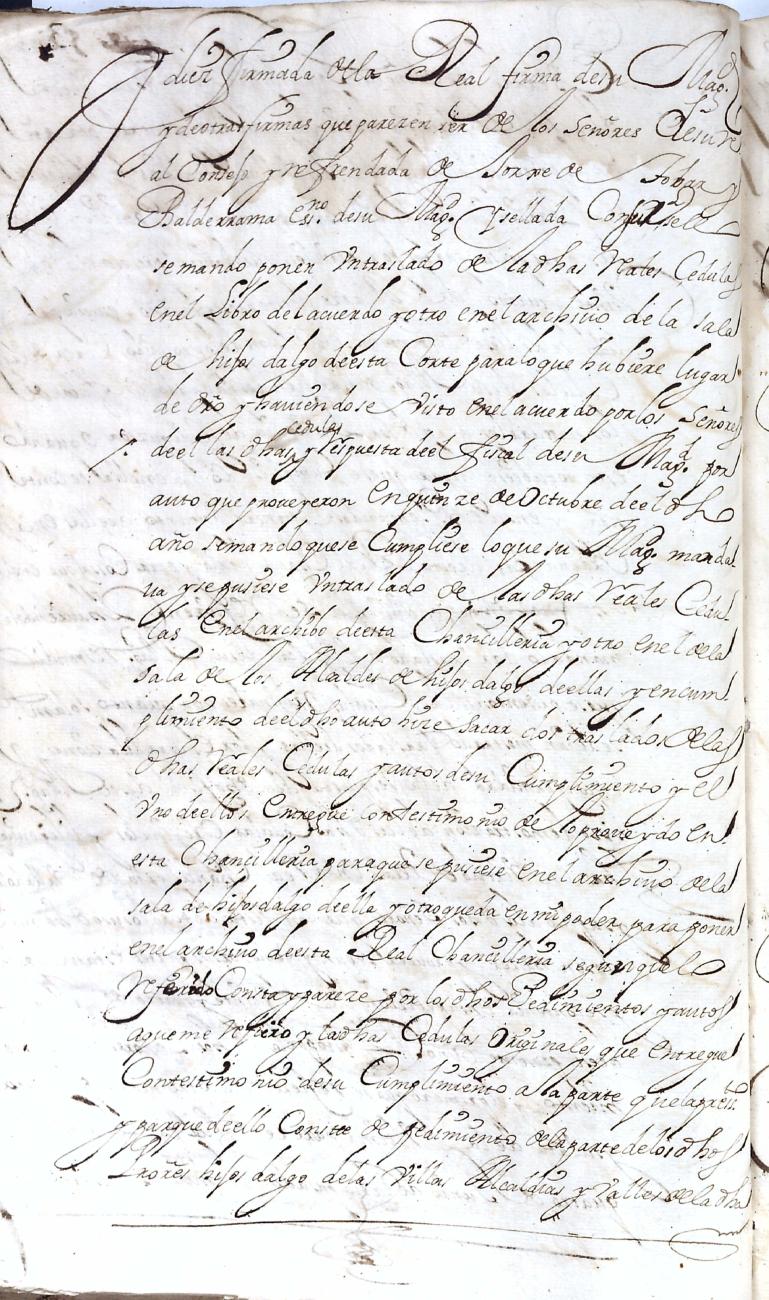 y diez firmada de la Real firma de su Magd
y de otras firmas que parezen ser de los Señores de su re
al Consejo y refrendada de Jorxe de Tobar y
Balderrama essno de su Magd y sellada Con su Rl sello
se mando poner Un traslado de las dhas Reales Cedulas
en el Libro del acuerdo y otro en el archivo de la sala
de hijos dalgo de esta Corte para lo que hubiere lugar
de dro y haviendose visto en el acuerdo por los Señores
de el las dhas cedulas y Respuesta de el fiscal de su Magd por
auto que proveyeron en quinze de Octubre de el dho
año se mando que se Cumpliese lo que su Magd manda
va y se pusiese Un traslado de las dhas Reales Cedu
las En el archibo de esta Chancilleria y otro en el de la
sala de los Alcaldes de hijos dalgo de ellas y en cum
plimiento de el dho auto hize sacar dos traslados de las
dhas reales Cedulas y autos de su Cumplimiento y el
Uno de ellos Entregue con testimonio de lo proveydo en
esta Chancilleria para que se pusiese en el archivo de la
sala de hijos dalgo de ella y otro queda en mi poder para poner
en el archivo de esta Real Chancilleria segun que lo
referido Consta y pareze por los dhos Pedimientos y autos
a que me refiero y las dhas Cedulas Originales que entregue
Con testimonio de su Cumplimiento a la parte que la presto
y para que de ello Conste de pedimiento de la parte de los dhos
Prores hijos dalgo de las Villas Alcaldias y Valles de la dha